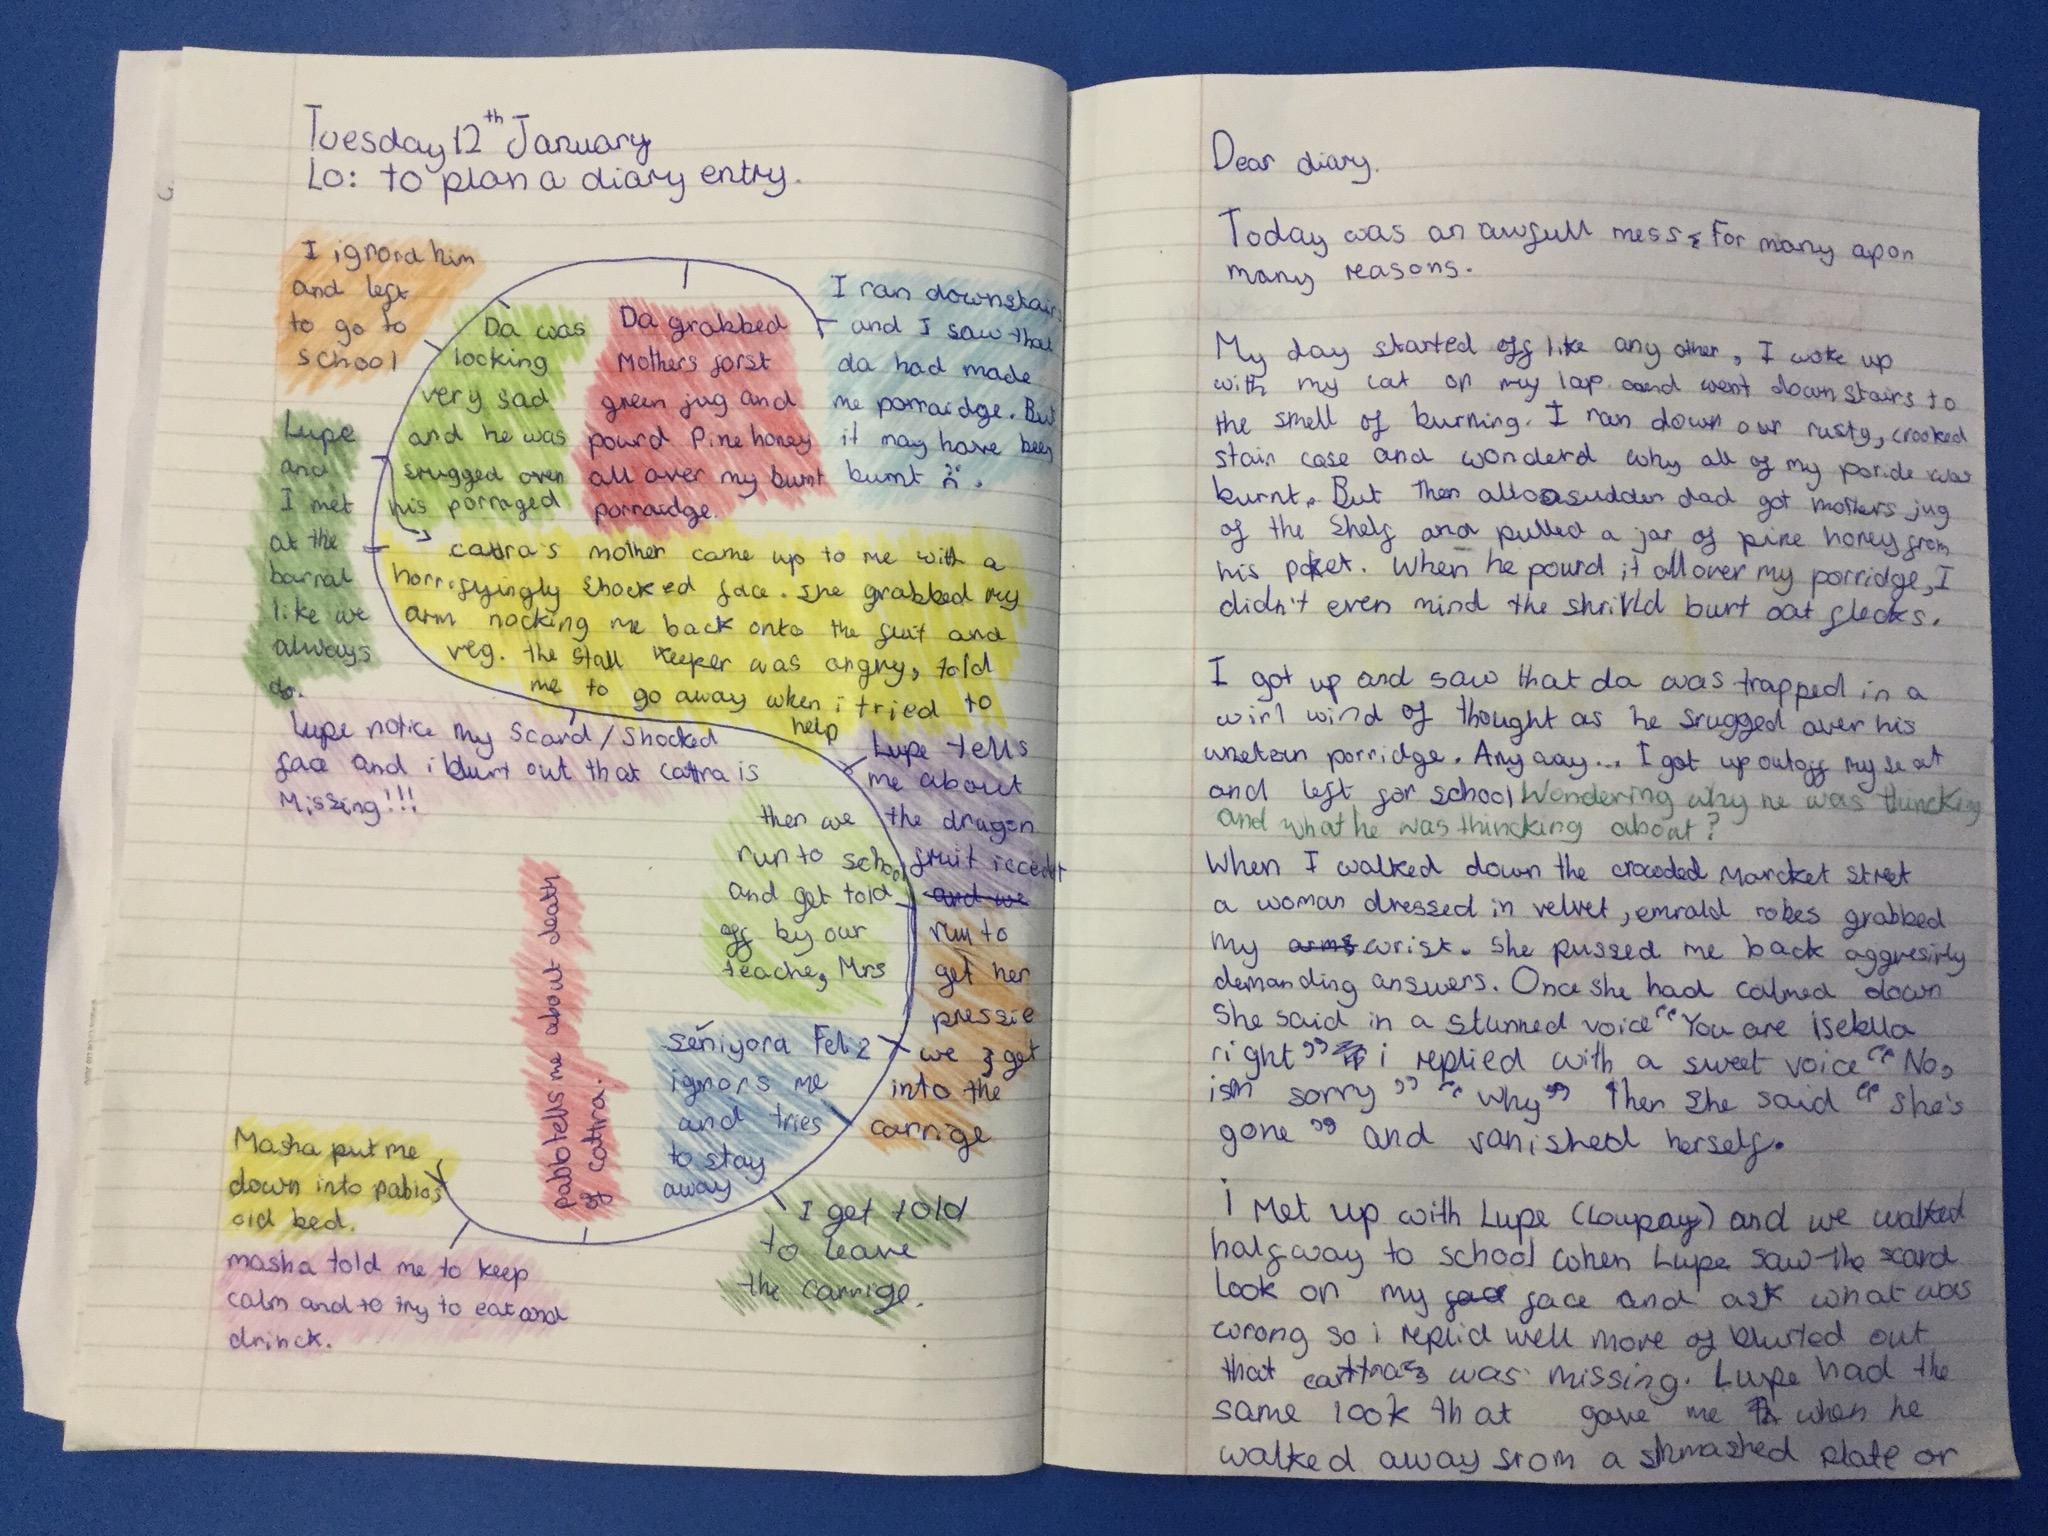 Tuesday 12th January
Lo: to plan a diary entry.
I ignord him
and left
to go to
school
Da was
locking
very sad
and he was
srugged over
his porraged
Da grabbed
Mothers forst
green jug and
pourd Pine honey
all over my burnt
porraidge.
I ran downstairs
and I saw that
da had made
me porraidge. But
it may have been
burnt :(.
Lupe
and
I met
at the
barral
like we
always
do.
cattra's mother came up to me with a
horrifyingly shocked face. she grabbed my
arm nocking me back onto the fruit and
veg. the stall keeper was angry, told
me to go away when i tried to
help
Lupe notice my scard/shocked
face and i blurt out that cattra is
Missing!!!
Lupe tells
me about
the dragon
fruit iccedent
and we
run to
get her
pressie
we get
into the
carrige
then we
run to school
and get told
off by our
teache, Mrs
señiyora Feliz
ignors me
and tries
to stay
away
pablo tells me about death
of cattra.
I get told
to leave
the carrige.
Masha put me
down into pablos
old bed.
masha told me to keep
calm and to try to eat and
drinck.
Dear diary.
Today was an awfull mess, For many apon
many reasons.
My day started off like any other, I woke up
with my cat on my lap and went down stairs to
the smell of burning. I ran down our rusty, crooked
stair case and wonderd why all of my poride was
burnt. But then all oa sudden dad got mothers jug
of the Shelf and pulled a jar of pine honey from
his poket. When he pourd it all over my porridge, I
didn't even mind the shrivld burt oat fleoks.
I got up and saw that da was trapped in a
wirl wind of thought as he srugged over his
uneten porridge. Any way... I got up outoff my seat
and left for school Wondering why he was thincking
and what he was thincking about?
When I walked down the crowded Marcket street
a woman dressed in velvet, emrald robes grabbed
my arms wrist. She pussed me back aggresivly
demanding answers. Once she had calmed down
she said in a stunned voice "You are isebella
right" i replied with a sweet voice "No,
ism sorry" "why" then she said "she's
gone" and vanished herself.
i Met up with Lupe (Loupay) and we walked
half way to school when Lupe saw the scard
look on my face and ask what was
wrong so i replid well more of blurted out
that cattra's was missing. Lupe had the
same look that gave me when he
walked away from a shmashed plate or